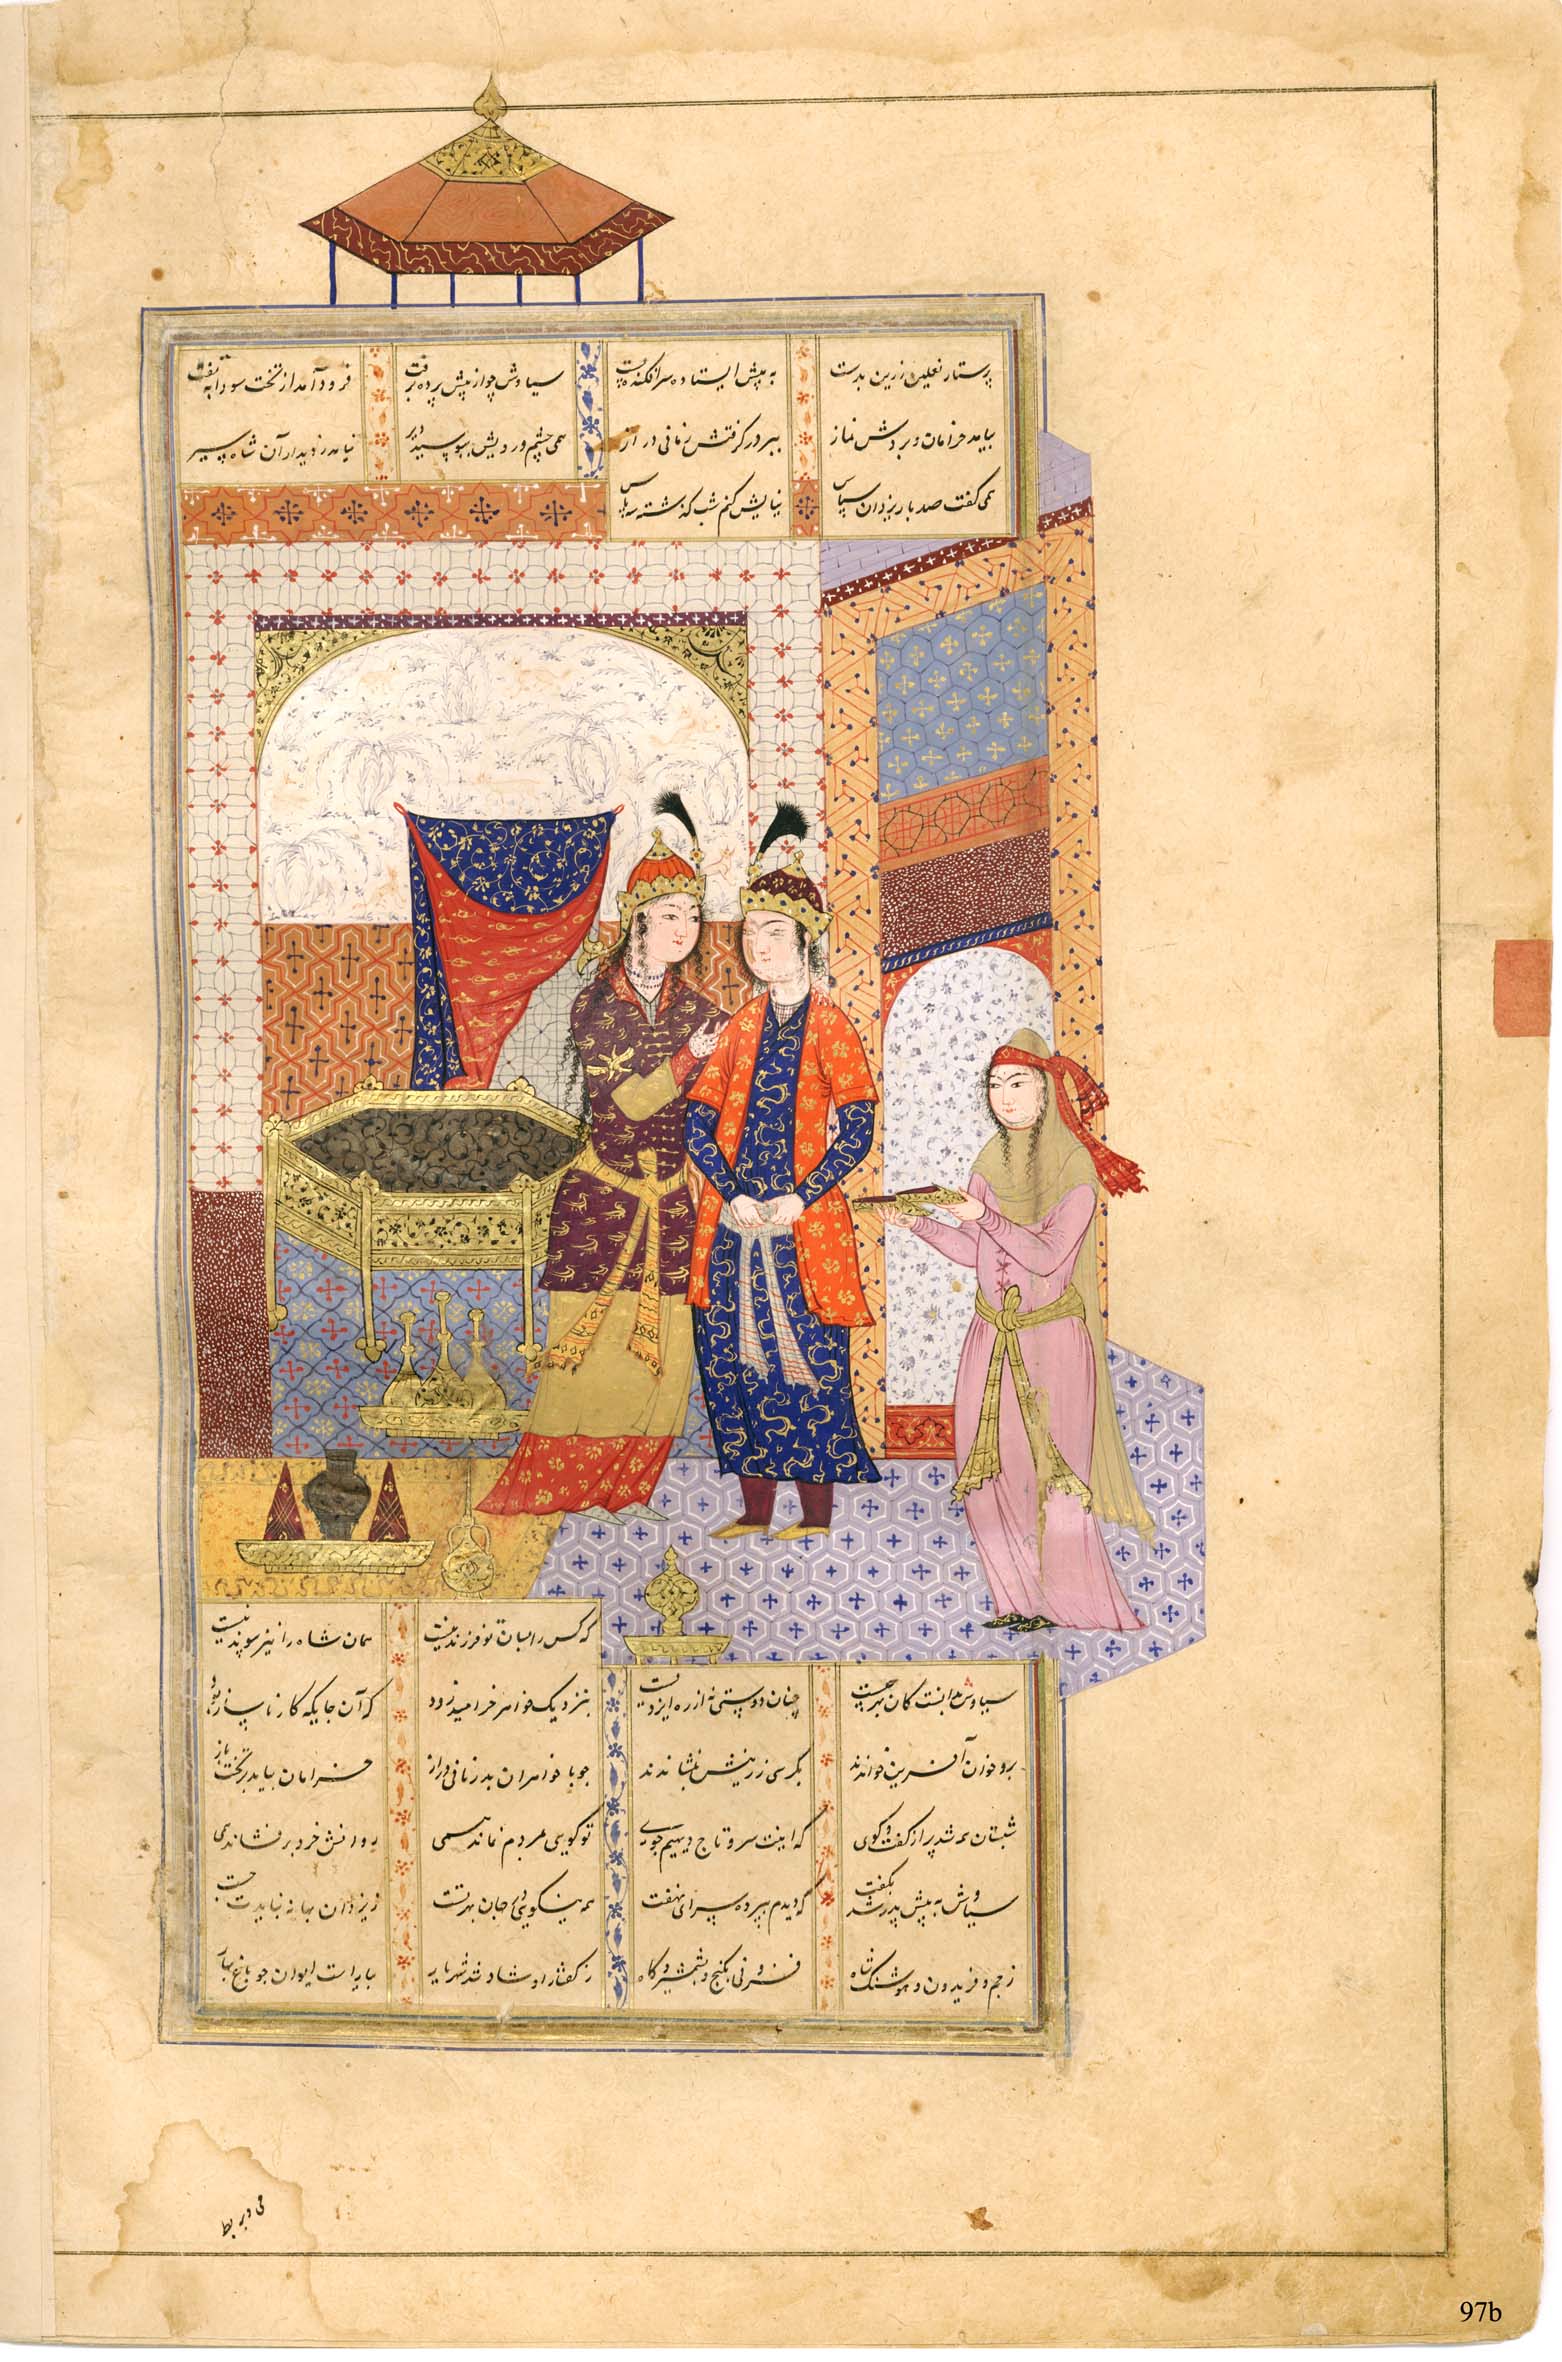 پرستار نعلین زرین بدست به پیش ایستاده سرافکنده پست سیاوش چو از پیش پرده برفت فرود آمد از تخت سودابه تفت
بیامد خرامان و بردش نماز ببر در گرفتش زمانی دراز همی چشم و رویش ببوسید دیر نیامد ز دیدار آن شاه سیر
همی گفت صد بار یزدان سپاس نیایش کنم شب گذشته سه پاس
که کس را بسان تو فرزند نیست همان شاه را نیز پیوند نیست
سیاوش بدانست کان مهر چیست چنان دوستی نه از ره ایزدیست بنزدیک خواهر خرامید زود که آن جایگه کار ناساز بود
آفرین خواندند بکرسی زرینش بنشاندند چو با خواهران بد زمانی دراز خرامان بیامد بر تخت باز
شبستان همه شد پر از گفت و گوی که اینت سر و تاج دیهیم جوی تو گویی بمردم نماند همی روانش خرد برفشاند همی
سیاوش به پیش پدر شد بگفت که دیدم بپرده سرای نهفت همه نیکویی در جهان بهر تست ز یزدان بهانه نبایدت جست
ز جم و فریدون و هوشنگ شاه فزونی بگنج و بشمشیر و گاه ز گفتار او شاد شد شهریار بیاراست ایوان چو باغ بهار
97b